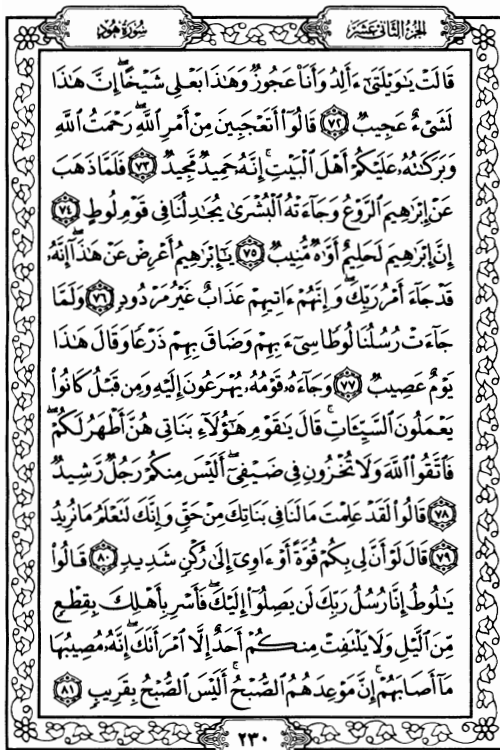 سُورَةُ هُودٍ
الجُزْءُ الثَّانِي عَشَرَ
قَالَتْ يَٰوَيْلَتَىٰٓ ءَأَلِدُ وَأَنَا۠ عَجُوزٌ وَهَٰذَا بَعْلِى شَيْخًا ۖ إِنَّ هَٰذَا
لَشَىْءٌ عَجِيبٌ ﴿٧٢﴾ قَالُوٓا۟ أَتَعْجَبِينَ مِنْ أَمْرِ ٱللَّهِ ۖ رَحْمَتُ ٱللَّهِ
وَبَرَكَٰتُهُۥ عَلَيْكُمْ أَهْلَ ٱلْبَيْتِ ۚ إِنَّهُۥ حَمِيدٌ مَّجِيدٌ ﴿٧٣﴾ فَلَمَّا ذَهَبَ
عَنْ إِبْرَٰهِيمَ ٱلرَّوْعُ وَجَآءَتْهُ ٱلْبُشْرَىٰ يُجَٰدِلُنَا فِى قَوْمِ لُوطٍ ﴿٧٤﴾
إِنَّ إِبْرَٰهِيمَ لَحَلِيمٌ أَوَّٰهٌ مُّنِيبٌ ﴿٧٥﴾ يَٰٓإِبْرَٰهِيمُ أَعْرِضْ عَنْ هَٰذَآ ۖ إِنَّهُۥ
قَدْ جَآءَ أَمْرُ رَبِّكَ ۖ وَإِنَّهُمْ ءَاتِيهِمْ عَذَابٌ غَيْرُ مَرْدُودٍ ﴿٧٦﴾ وَلَمَّا
جَآءَتْ رُسُلُنَا لُوطًا سِىٓءَ بِهِمْ وَضَاقَ بِهِمْ ذَرْعًا وَقَالَ هَٰذَا
يَوْمٌ عَصِيبٌ ﴿٧٧﴾ وَجَآءَهُۥ قَوْمُهُۥ يُهْرَعُونَ إِلَيْهِ وَمِن قَبْلُ كَانُوا۟
يَعْمَلُونَ ٱلسَّيِّـَٔاتِ ۚ قَالَ يَٰقَوْمِ هَٰٓؤُلَآءِ بَنَاتِى هُنَّ أَطْهَرُ لَكُمْ ۖ
فَٱتَّقُوا۟ ٱللَّهَ وَلَا تُخْزُونِ فِى ضَيْفِىٓ ۖ أَلَيْسَ مِنكُمْ رَجُلٌ رَّشِيدٌ
﴿٧٨﴾ قَالُوا۟ لَقَدْ عَلِمْتَ مَا لَنَا فِى بَنَاتِكَ مِنْ حَقٍّ وَإِنَّكَ لَتَعْلَمُ مَا نُرِيدُ
﴿٧٩﴾ قَالَ لَوْ أَنَّ لِى بِكُمْ قُوَّةً أَوْ ءَاوِىٓ إِلَىٰ رُكْنٍ شَدِيدٍ ﴿٨٠﴾ قَالُوا۟
يَٰلُوطُ إِنَّا رُسُلُ رَبِّكَ لَن يَصِلُوٓا۟ إِلَيْكَ ۖ فَأَسْرِ بِأَهْلِكَ بِقِطْعٍ
مِّنَ ٱلَّيْلِ وَلَا يَلْتَفِتْ مِنكُمْ أَحَدٌ إِلَّا ٱمْرَأَتَكَ ۖ إِنَّهُۥ مُصِيبُهَا
مَآ أَصَابَهُمْ ۚ إِنَّ مَوْعِدَهُمُ ٱلصُّبْحُ ۚ أَلَيْسَ ٱلصُّبْحُ بِقَرِيبٍ ﴿٨١﴾
٢٣٠